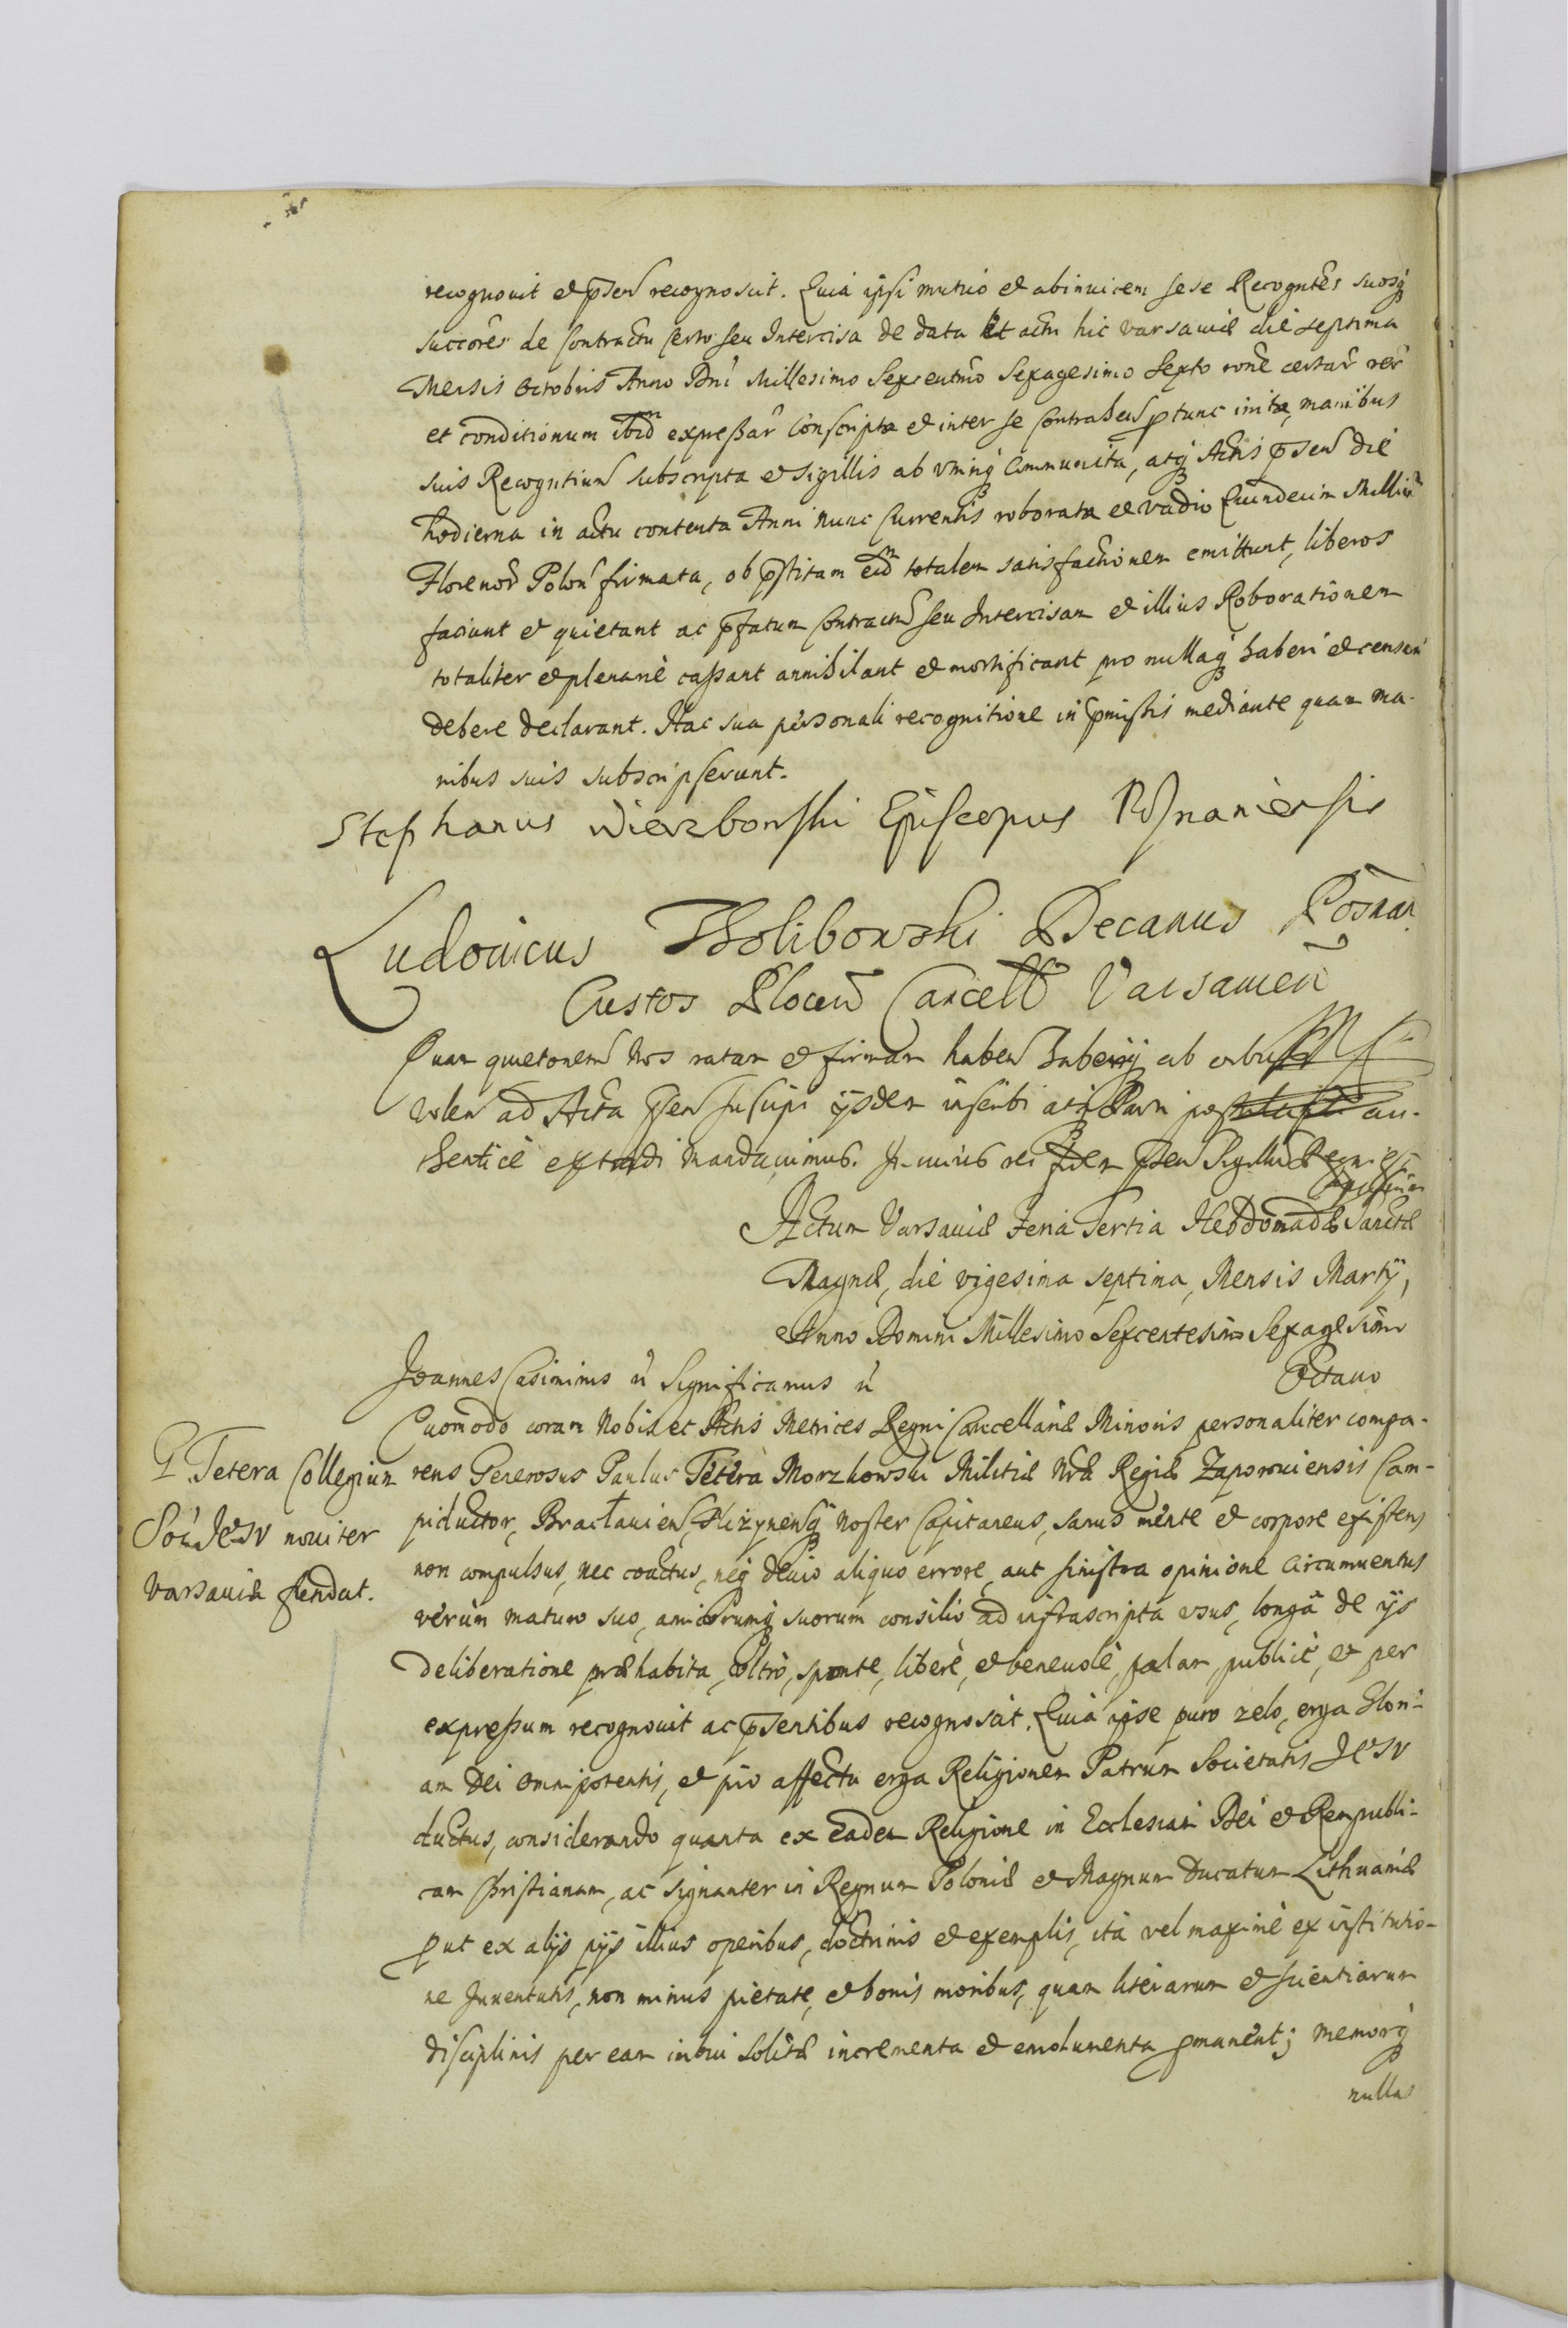 recognouit et pñsen̄ recognoscit. Quia ipsi mutuo et abinuicem sese Recogntēs suosq
succorēs de Contractu certo seu Intercisa de data et actu hic Varsauiæ die septima
Mensis Octobris Anno Dni Millesimo Sexcentmo Sexagesimo Sexto rone certar rer
et conditionum ibidm expressar Conscripta et inter se Contrahen ptunc inita, manibus
suis Recogntium subscripta et sigillis ab vtrinq Communita, atq Actis pñsen die
hodierna in actu contenta Anni nunc Currentis roborata et vadio Quindecim Milliu
Florenor Polon firmata, ob pstitam eidm totalem satisfactionem emittunt, liberos
faciunt et quietant ac pfatum Contractu seu Intercisam et illius Roborationem
totaliter et plenarie cassant annihilant et mortificant pro nullaq haberi et censeri
debere declarant. Hac sua personali recognitione in pmissis mediante quam ma-
nibus suis subscripserunt.
Stephanus Wierzbowski Episcopus Posnaniensis
Ludouicus Tholibowski Decanus Posnan
Custos Plocen Cancell Varsauien
Quam quietonem Nos ratam et firmam haben haberiq ab
volen ad Acta pñsen suscipi ijsdem inscribi atq Parti au-
thentice extradi Mandauimus. In cuius rei fidem pñsen Sigillu Regni est
Actum Varsauiæ Feria Tertia Hebdomadæ Sanctæ
Magnæ, die vigesima septima, Mensis Martij,
Anno Domini Millesimo Sexcentesimo Sexagesimo
Octauo
Joannes Casimirus Significamus
Quomodo coram Nobis et Actis Metrices Regni Cancellariæ Minoris personaliter compa-
P Tetera Collegium
Soc JESV nouiter
Varsauiæ fundat.
rens Generosus Paulus Tetera Morzkowski Militiæ Nræ Regiæ Zaporouiensis Cam-
piductor, Braclauien, Nizynensq Noster Capitaneus, sanus mente et corpore existens
non compulsus, nec coactus, neq deuio aliquo errore, aut sinistra opinione circumuentus
verùm maturo suo, amicorumq suorum consilio ad infrascripta vsus, longâ de ijs
deliberatione præhabita, vltrò, sponte, liberè, et beneuolè, palam, publicè, et per
expressum recognouit ac pñsentibus recognoscit. Quia ipse puro zelo, erga Glori-
am Dei Omnipotentis, et pio affectu erga Religionem Patrum Societatis JESV
ductus, considerando quanta ex Eadem Religione in Ecclesiam Dei et Rempubli-
cam Christianam, ac signanter in Regnum Poloniæ et Magnum Ducatum Lithuaniæ
put ex alijs pijs illius operibus, doctrinis et exemplis, ita vel maximè ex institutio-
ne Juuentutis, non minus pietate, et bonis moribus, quam literarum et scientiarum
disciplinis per eam imbui solitæ incrementa et emolumenta pmanent; memorq
nullas